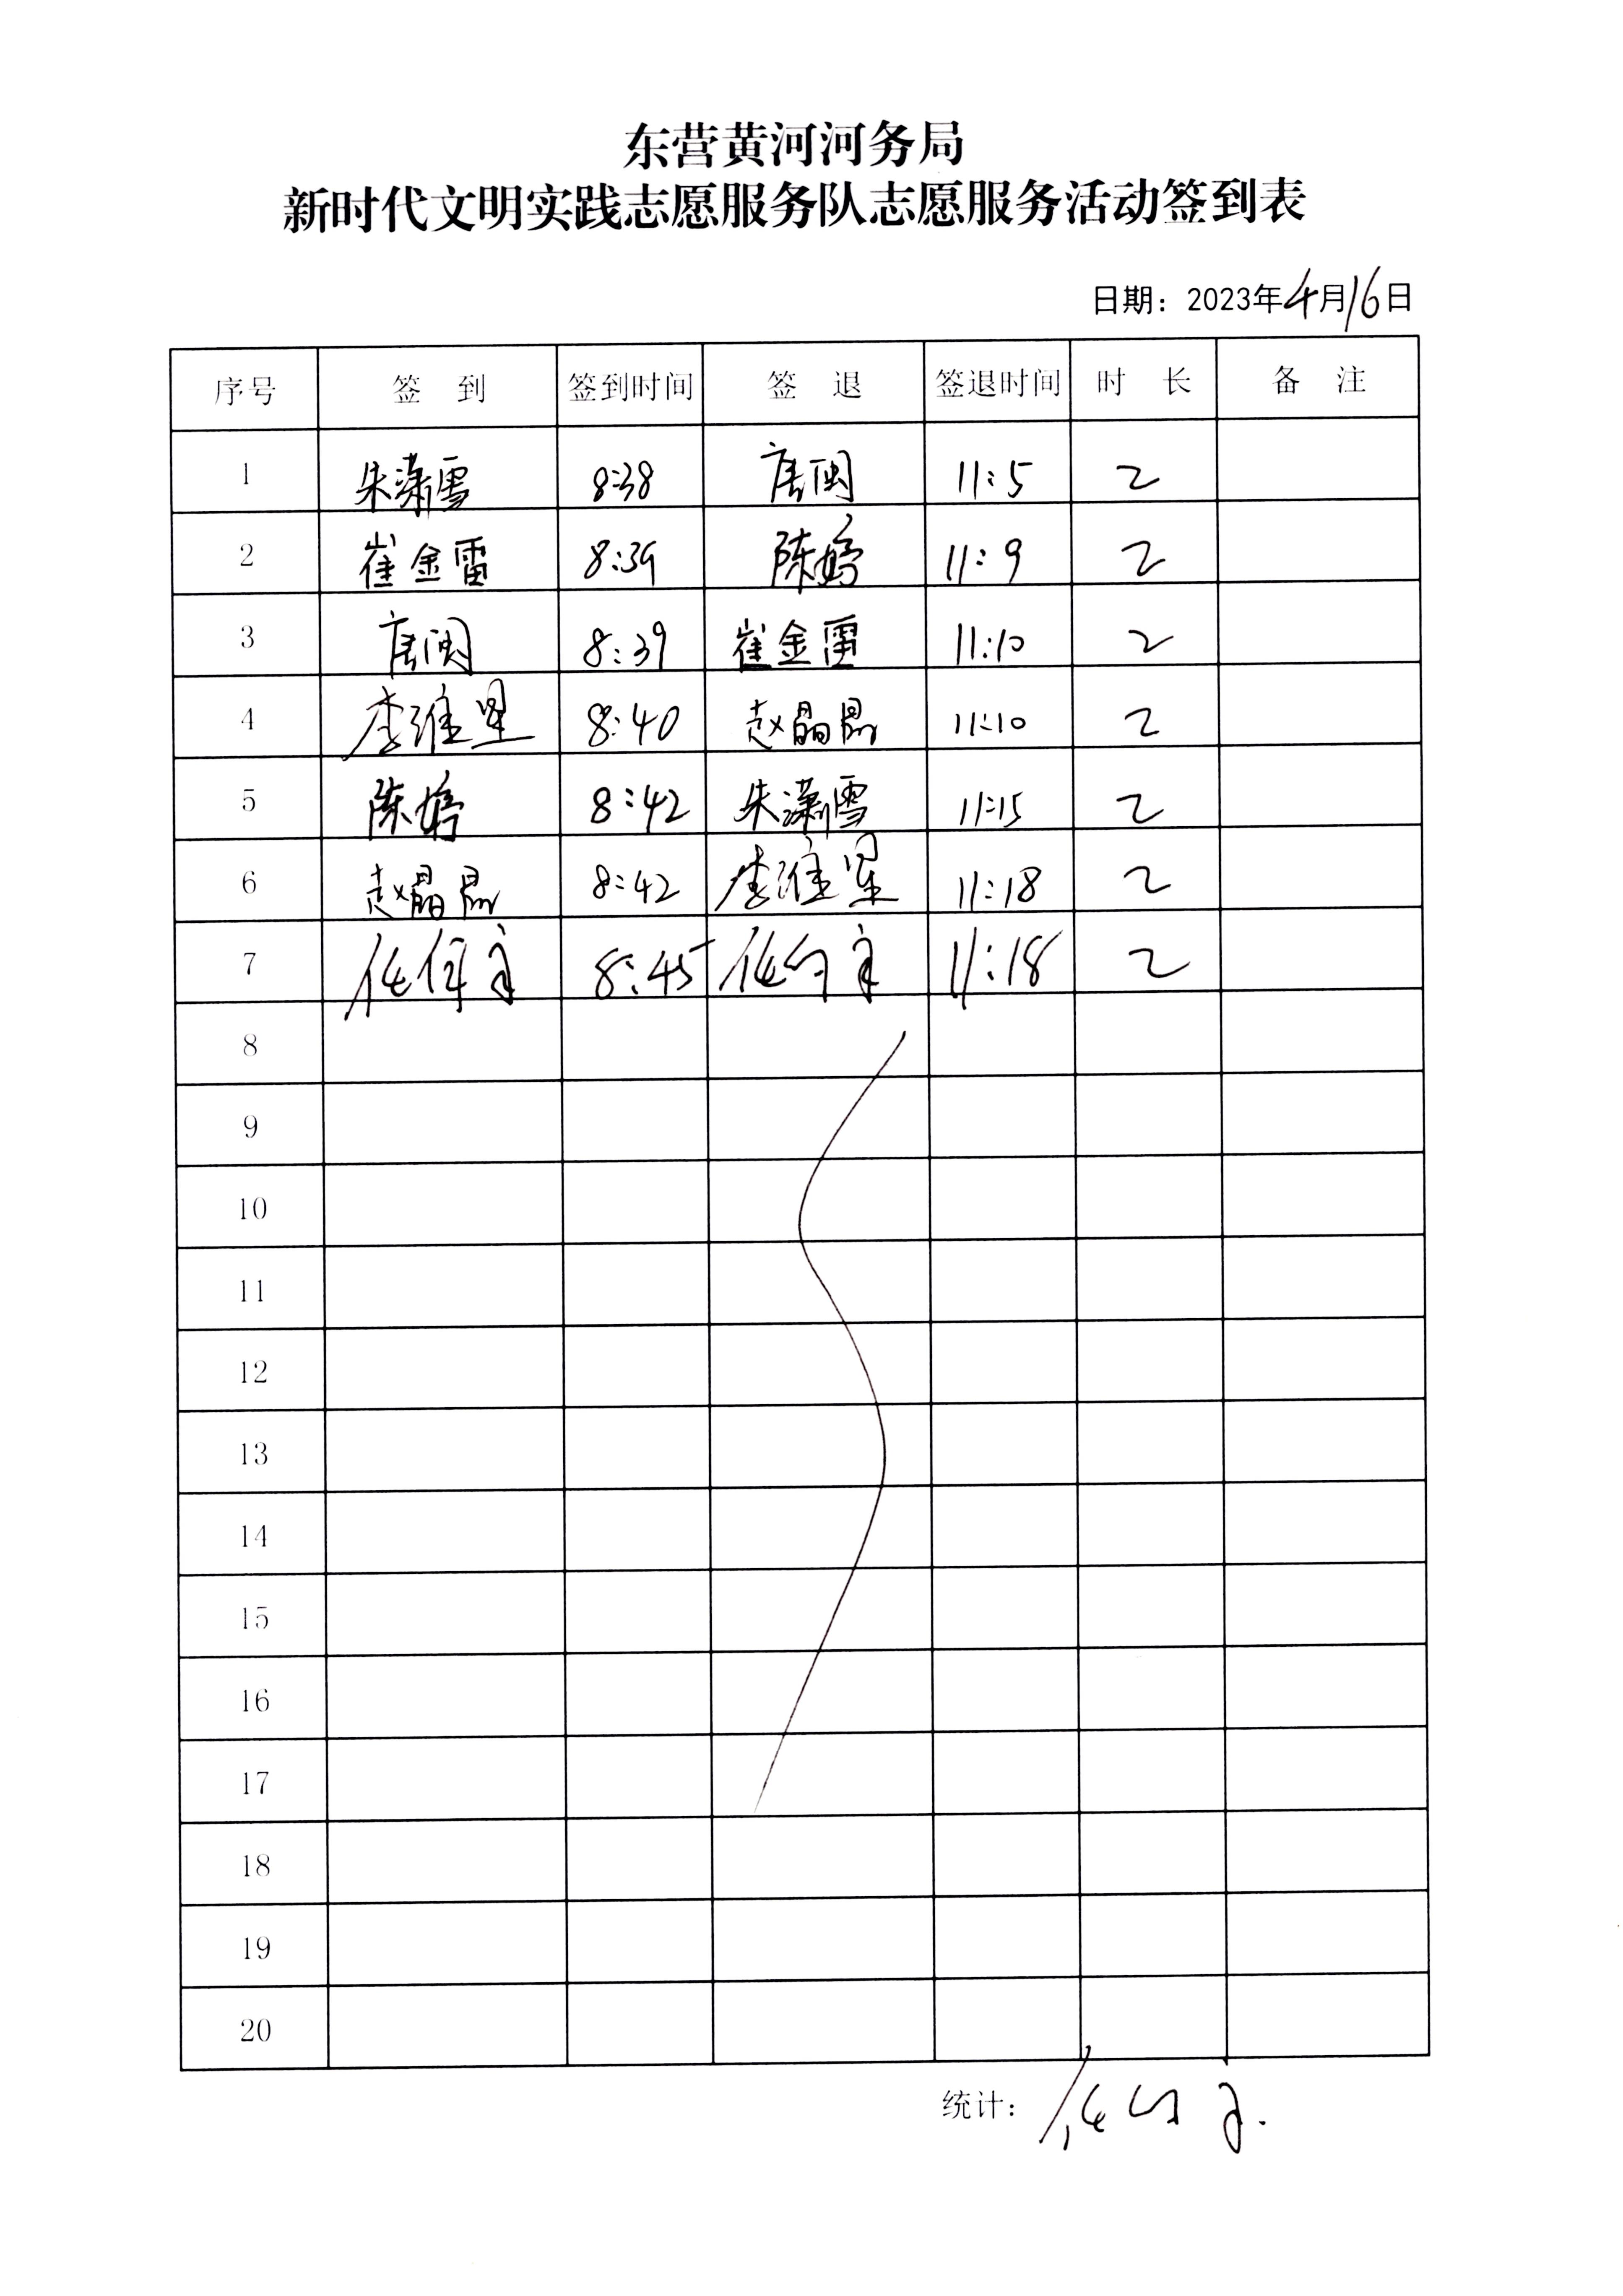 东营黄河河务局
新时代文明实践志愿服务队志愿服务活动签到表
日期：2023年4月16日
序号 签 到 签到时间 签 退 签退时间 时 长 备 注
1 朱潇雪 8:38 唐闽 11:5 2
2 崔金雷 8:39 陈婷 11:9 2
3 唐闽 8:39 崔金雷 11:10 2
4 李维星 8:40 赵晶晶 11:10 2
5 陈婷 8:42 朱潇雪 11:15 2
6 赵晶晶 8:42 李维星 11:18 2
7 8:45 11:18 2
8
9
10
11
12
13
14
15
16
17
18
19
20
统计：